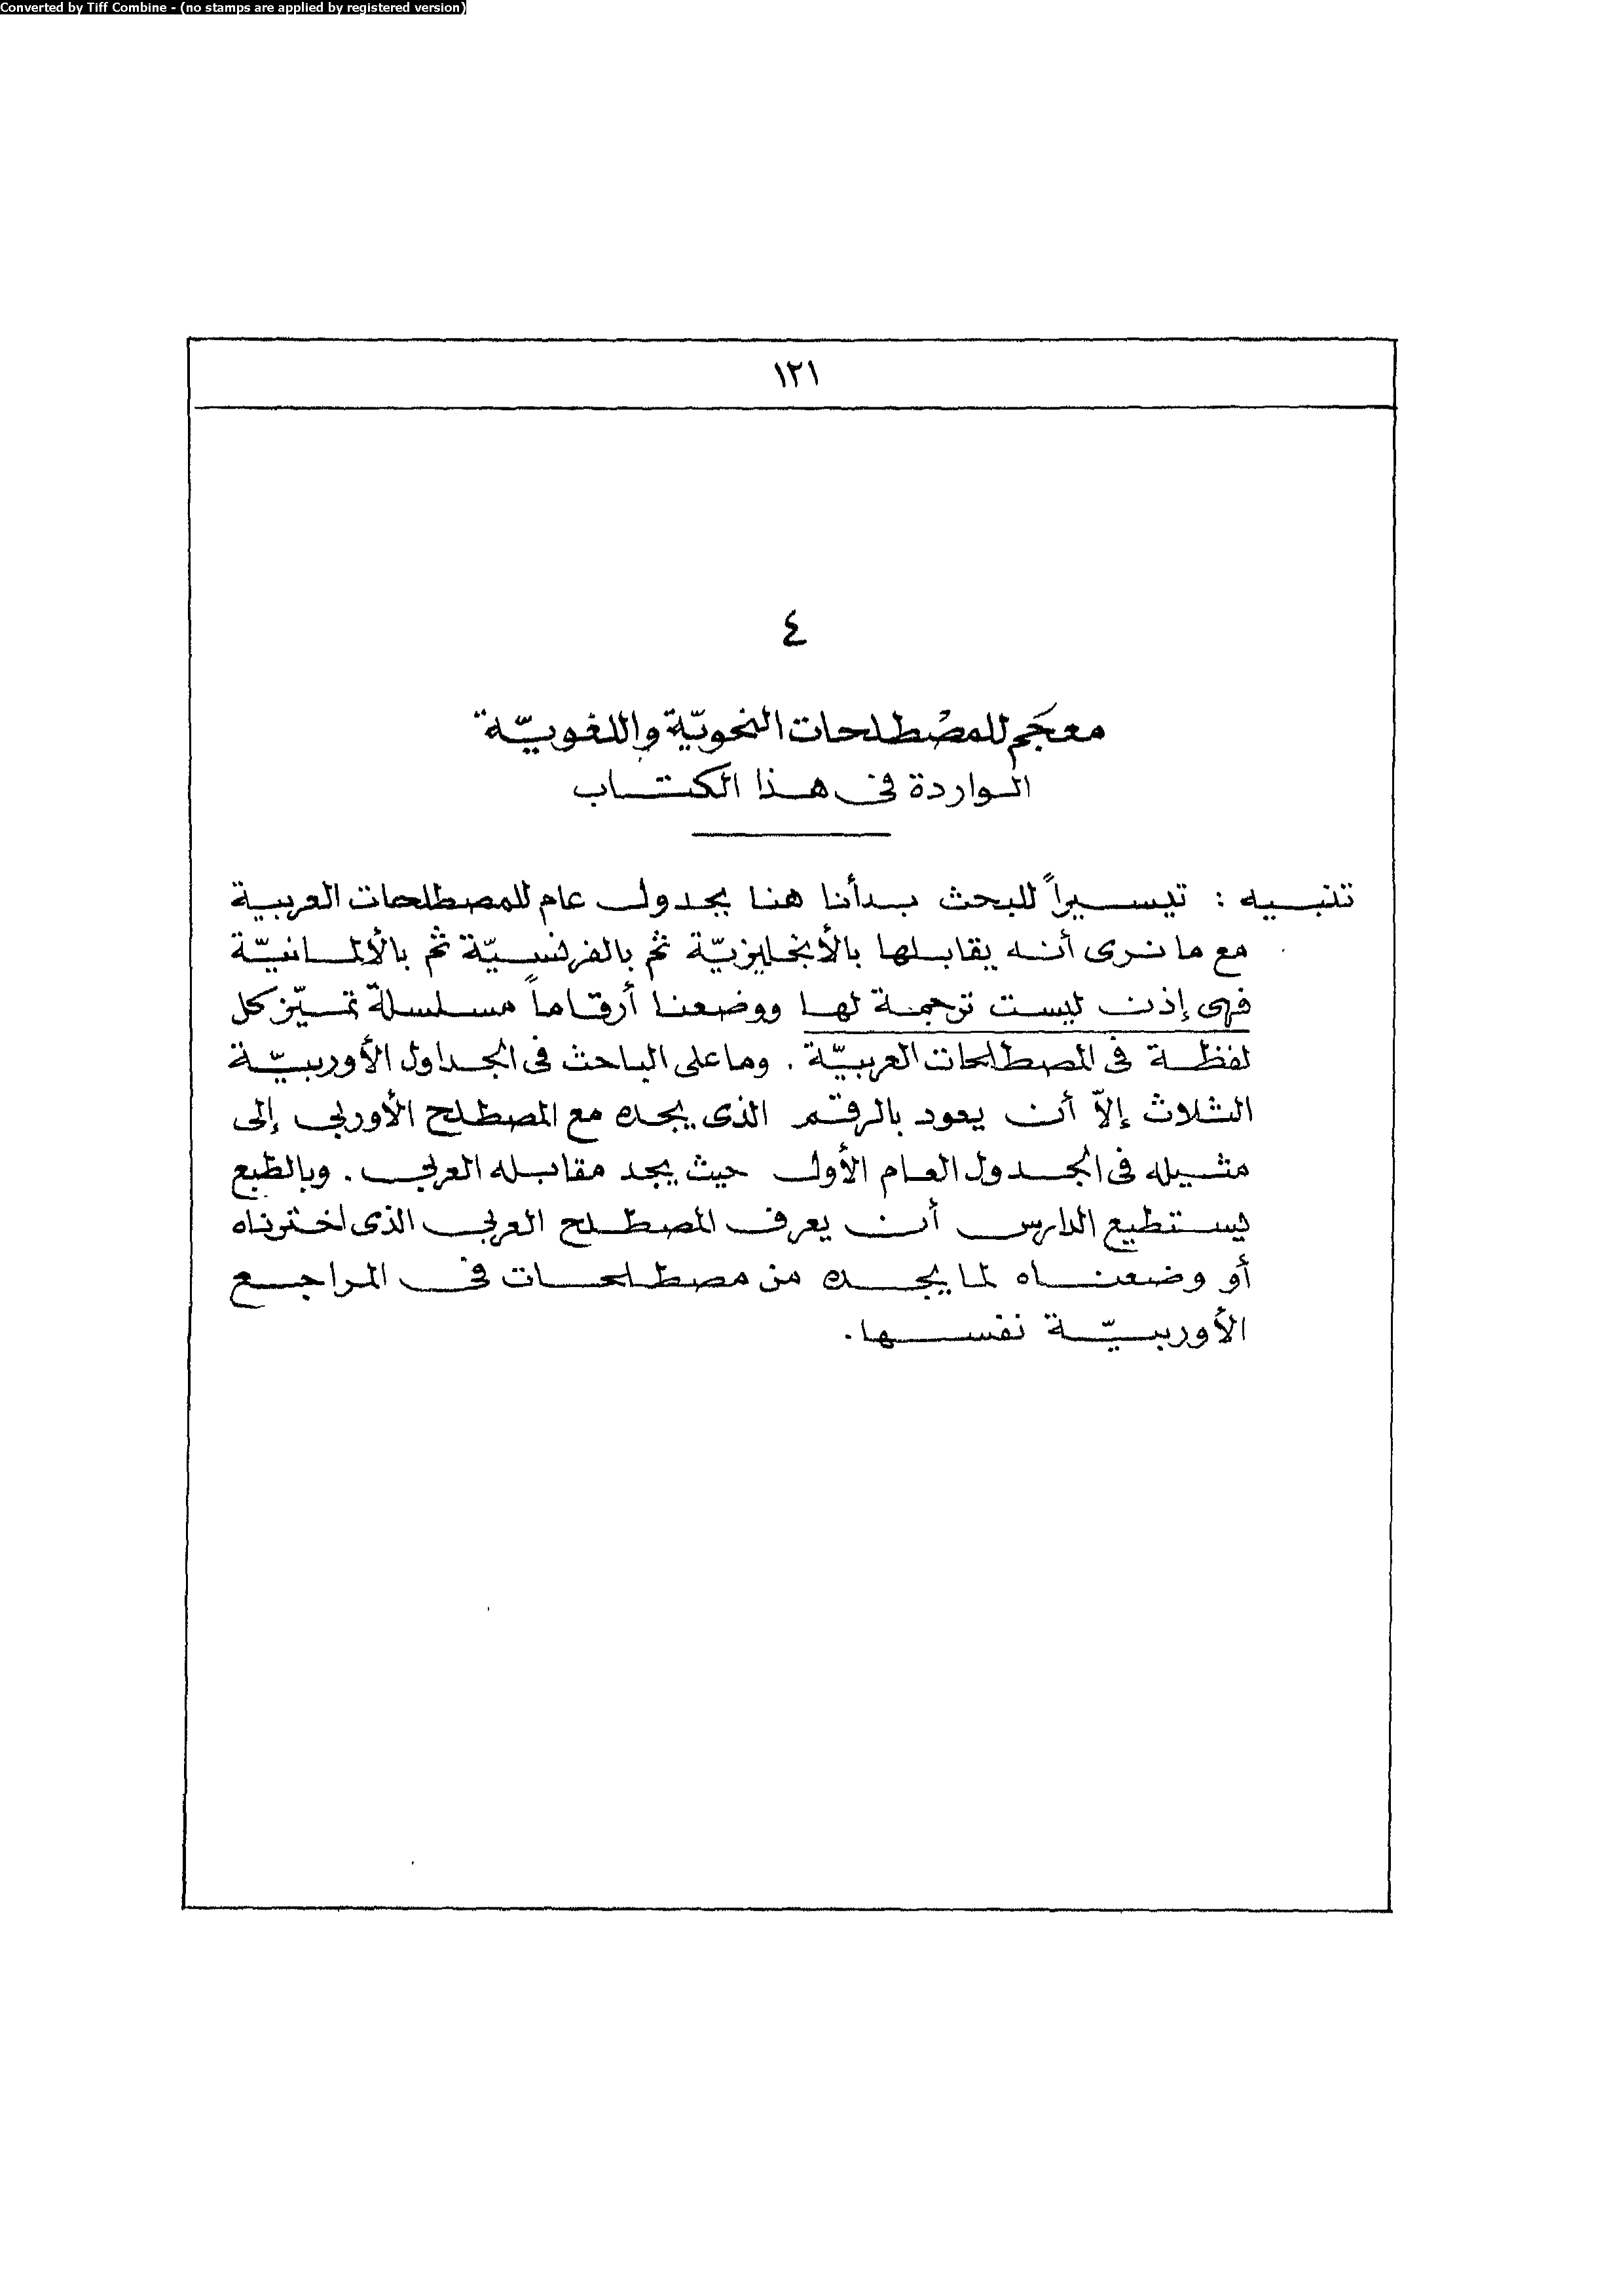 Converted by Tiff Combine - (no stamps are applied by registered version)
١٢١
٤
معجَم للمصْطلحات النحويّة واللغويّة
الواردة فى هذا الكتاب
تنبيه : تيسيراً للبحث بدأنا هنا بجدول عام للمصطلحات العربية
مع ما نرى أنه يقابلها بالأنجليزيّة ثم بالفرنسيّة ثم بالألمانيّة
فهى إذن ليست ترجمة لها ووضعنا أرقاماً مسلسلة تميّز كل
لفظة فى المصطلحات العربيّة . وما على الباحث فى الجداول الأوربيّة
الثلاث إلاّ أن يعود بالرقم الذى يجده مع المصطلح الأوربى إلى
مثيله فى الجدول العام الأول حيث يجد مقابله العربى . وبالطبع
يستطيع الدارس أن يعرف المصطلح العربى الذى اخترناه
أو وضعناه لما يجده من مصطلحات فى المراجع
الأوربيّة نفسها .